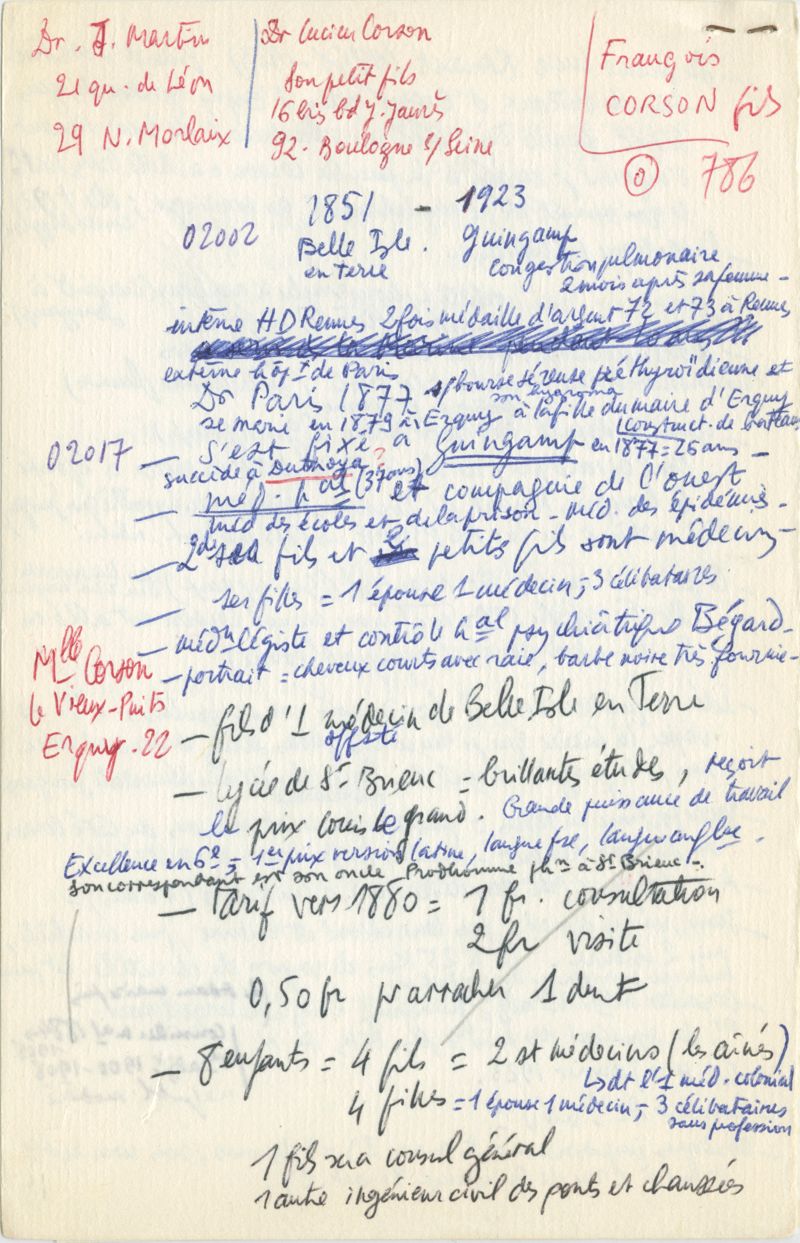 Dr. J. Martin
21 qu. de Léon
29 N. Morlaix
Dr Lucien Corson
son petit fils
16 bis bd J. Jaurès
92. Boulogne s/ Seine
François
CORSON fils
786
1851 - 1923
02002 Belle Isle. Guingamp
en terre congestion pulmonaire
2 mois après sa femme -
interne HD Rennes 2 fois médaille d'argent 72 et 73 à Rennes
externe hôp. de Paris
Dr Paris 1877 s/ bourse séreuse préthyroïdienne et
son hygroma
se marie en 1879 à Erquy à la fille du maire d'Erquy
(construct. de bateaux
02017 — s'est fixé à Guingamp en 1877 = 26 ans -
succède à ?
— méd. hal (37 ans) et compagnie de l'ouest
méd des écoles et de la prison - méd. des épidémies -
— 2 de ses fils et petits fils sont médecins -
— ses filles = 1 épouse 1 médecin ; 3 célibataires
— médn légiste et contrôle hal psychiâtrique Bégard -
— portrait = cheveux courts avec raie, barbe noire très fournie -
Mlle Corson
le Vieux-Puits
Erquy. 22
— fils d'1 médecin de Belle Isle en Terre
— lycée de St Brieuc = brillantes études, reçoit
le prix Louis le grand. Grande puissance de travail
Excellence en 6e = 1er prix version latine, langue fse, langue anglse.
son correspondant est son oncle Prodhomme phn à St Brieuc -
— Tarif vers 1880 = 1 fr. consultation
2 fr visite
0,50 fr pr arracher 1 dent
— 8 enfants = 4 fils = 2 st médecins (les aînés)
dt l'1 méd. colonial
4 filles = 1 épouse 1 médecin, = 3 célibataires
sans profession
1 fils sera consul général
1 autre ingénieur civil des ponts et chaussées